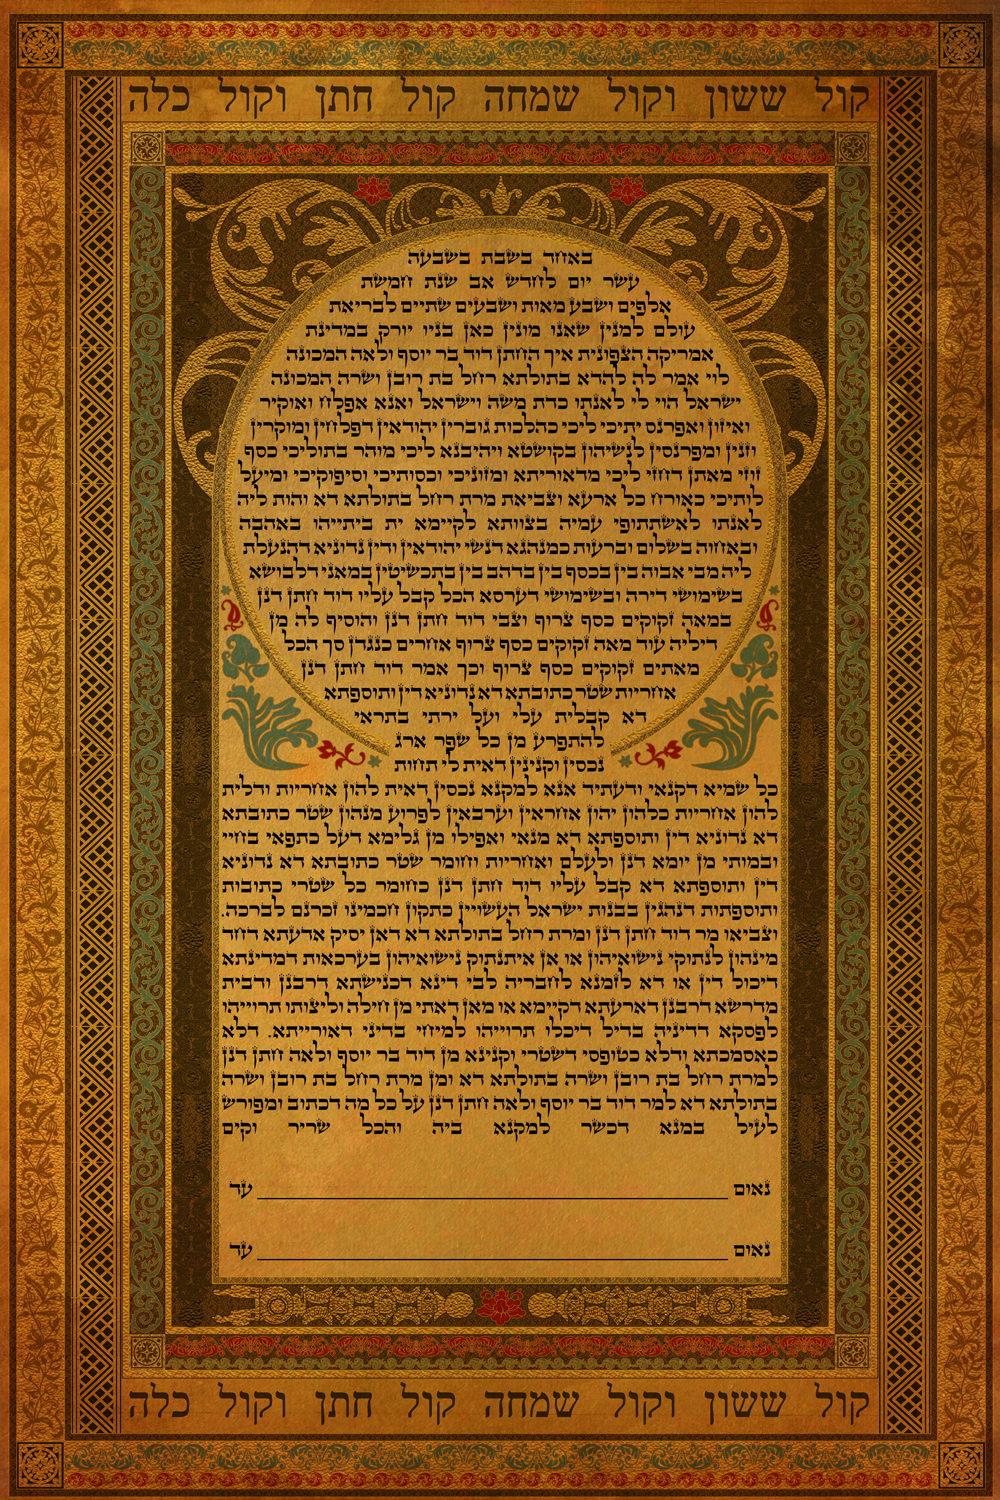 קול ששון וקול שמחה קול חתן וקול כלה
באחד בשבת בשבעה
עשר יום לחדש אב שנת חמשת
אלפים ושבע מאות ושבעים שתיים לבריאת
עולם למנין שאנו מונין כאן בניו יורק במדינת
אמריקה הצפונית איך החתן דוד בר יוסף ולאה המכונה
לוי אמר לה להדא בתולתא רחל בת רובן ושרה המכונה
ישראל הוי לי לאנתו כדת משה וישראל ואנא אפלח ואוקיר
ואיזון ואפרנס יתיכי ליכי כהלכות גוברין יהודאין דפלחין ומוקרין
וזנין ומפרנסין לנשיהון בקושטא ויהיבנא ליכי מוהר בתוליכי כסף
זוזי מאתן דחזי ליכי מדאוריתא ומזוניכי וכסותיכי וסיפוקיכי ומיעל
לותיכי כאורח כל ארעא וצביאת מרת רחל בתולתא דא והות ליה
לאנתו לאשתתופי עמיה בצוותא לקיימא ית ביתייהו באהבה
ובאחוה בשלום וברעות כמנהגא דנשי יהודאין ודין נדוניא דהנעלת
ליה מבי אבוה בין בכסף בין בדהב בין בתכשיטין במאני דלבושא
בשימושי דירה ובשימושי דערסא הכל קבל עליו דוד חתן דנן
במאה זקוקים כסף צרוף וצבי דוד חתן דנן והוסיף לה מן
דיליה עוד מאה זקוקים כסף צרוף אחרים כנגדן סך הכל
מאתים זקוקים כסף צרוף וכך אמר דוד חתן דנן
אחריות שטר כתובתא דא נדוניא דין ותוספתא
דא קבלית עלי ועל ירתי בתראי
להתפרע מן כל שפר ארג
נכסין וקנינין דאית לי תחות
כל שמיא דקנאי ודעתיד אנא למקנא נכסין דאית להון אחריות ודלית
להון אחריות כלהון יהון אחראין וערבאין לפרוע מנהון שטר כתובתא
דא נדוניא דין ותוספתא דא מנאי ואפילו מן גלימא דעל כתפאי בחיי
ובמותי מן יומא דנן ולעלם ואחריות וחומר שטר כתובתא דא נדוניא
דין ותוספתא דא קבל עליו דוד חתן דנן כחומר כל שטרי כתובות
ותוספתות דנהגין בבנות ישראל העשויין כתקון חכמינו זכרנם לברכה.
וצביאו מר דוד חתן דנן ומרת רחל בתולתא דא דאן יסיק אדעתא דחד
מינהון לנתוקי נישואיהון או אן איתנתוק נישואיהון בערכאות דמדינתא
דיכול דין או דא לזמנא לחבריה לבי דינא דכנישתא דרבנן ודבית
מדרשא דרבנן דארעתא דקיימא או מאן דאתי מן חילה וליצותו תרוייהו
לפסקא דדיניה בדיל דיכלו תרוייהו למיחי בדיני דאורייתא. דלא
כאסמכתא ודלא כטופסי דשטרי וקנינא מן דוד בר יוסף ולאה חתן דנן
למרת רחל בת רובן ושרה בתולתא דא ומן מרת רחל בת רובן ושרה
בתולתא דא למר דוד בר יוסף ולאה חתן דנן על כל מה דכתוב ומפורש
לעיל במנא דכשר למקנא ביה והכל שריר וקים
נאום עד
נאום עד
קול ששון וקול שמחה קול חתן וקול כלה